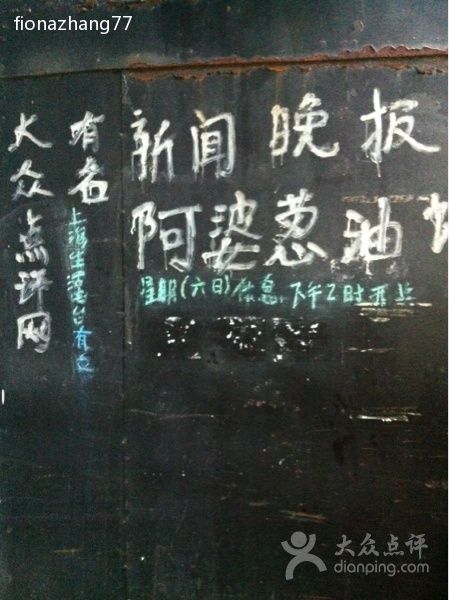 fionazhang77
新闻晚报
阿婆葱油
星期(六日)休息 下午2时开
有名
大众点评网
上海生活
台有
大众点评
dianping.com